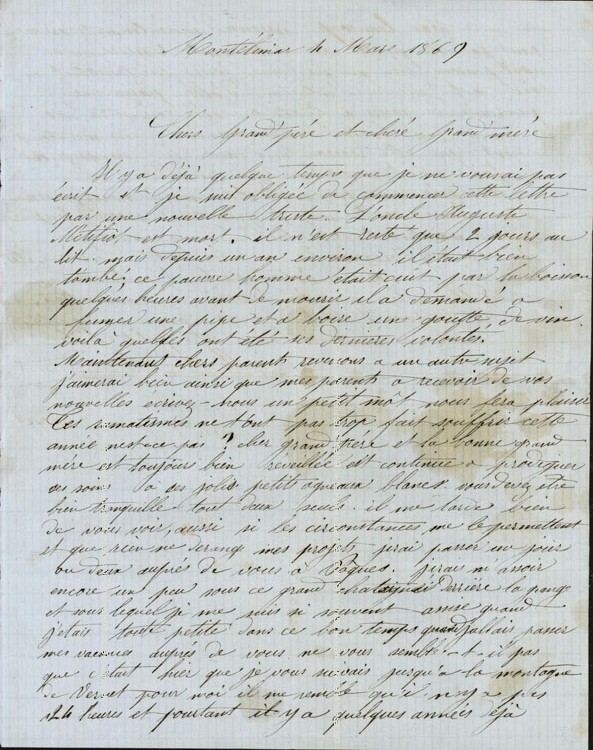 Montélimar 4 Mars 1869
Chers Grand'père et chère Grand'mère
Il y a déjà quelque temps que je ne vous ai pas
écrit et je suis obligée de commencer cette lettre
par une nouvelle triste. L'oncle Auguste
est mort. il n'est resté que 2 jours au
lit. mais depuis un an environ il était bien
tombé, ce pauvre homme était cuit par la boisson
quelques heures avant de mourir il a demandé a
fumer une pipe et a boire une goutte de vin.
voilà quelles ont été ses dernières volontés.
Maintenant chers parents revenons a un autre sujet
j'aimerai bien ainsi que mes parents a recevoir de vos
nouvelles écrivez-nous un petit mot nous fera plaisir
Les rumatismes ne t'ont pas trop fait souffrir cette
année n'est-ce pas ? cher grand'père et la bonne grand
mère est toujours bien reveillée et continue a prodiguer
des soins à ses jolis petit agneaux blancs. vous devez être
bien tranquille tout deux seuls. il me tarde bien
de vous voir, aussi si les circonstances me le permettent
et que rien ne derange mes projets j'irai passer un jour
ou deux auprès de vous a Pâques. j'irai m'assoir
encore un peu sous ce grand chataigner derrière la
et sous lequel je me suis si souvent assise quand
j'etais toute petite dans ce bon temps quand j'allais passer
mes vacances auprès de vous ne vous semble-t-il pas
que c'etait hier que je vous suivais jusqu'a la montagne
de Vernet pour moi il me semble qu'il n'y a pas
24 heures et pourtant il y a quelques années déjà